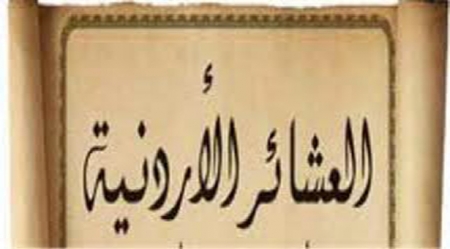 العشائر الأردنية